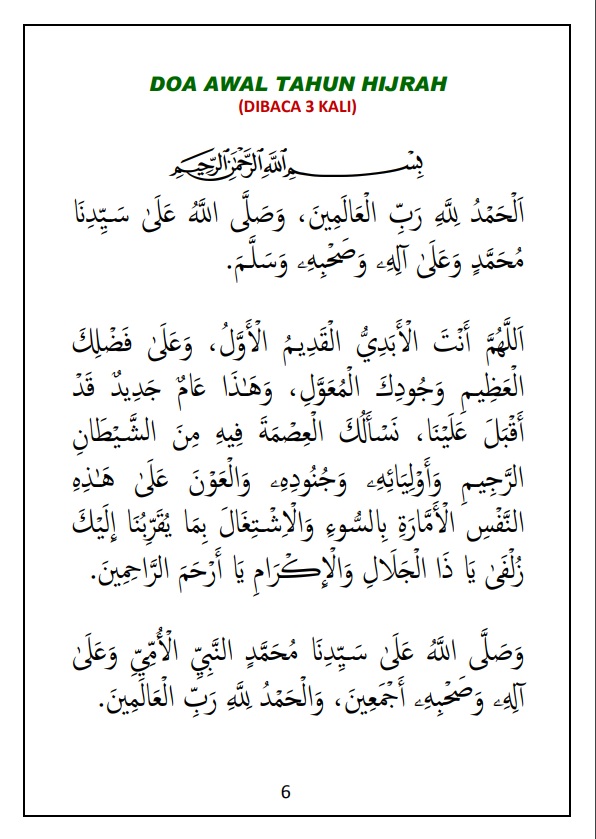 DOA AWAL TAHUN HIJRAH
(DIBACA 3 KALI)
بِسْمِ اللَّهِ الرَّحْمَٰنِ الرَّحِيمِ
اَلْحَمْدُ لِلَّهِ رَبِّ الْعَالَمِينَ، وَصَلَّى اللَّهُ عَلَىٰ سَيِّدِنَا
مُحَمَّدٍ وَعَلَىٰ آلِهِۦ وَصَحْبِهِۦ وَسَلَّمَ.
اَللَّهُمَّ أَنْتَ الْأَبَدِيُّ الْقَدِيمُ الْأَوَّلُ، وَعَلَىٰ فَضْلِكَ
الْعَظِيمِ وَجُودِكَ الْمُعَوَّلِ، وَهَـٰذَا عَامٌ جَدِيدٌ قَدْ
أَقْبَلَ عَلَيْنَا، نَسْأَلُكَ الْعِصْمَةَ فِيهِ مِنَ الشَّيْطَانِ
الرَّجِيمِ وَأَوْلِيَائِهِۦ وَجُنُودِهِۦ وَالْعَوْنَ عَلَىٰ هَـٰذِهِ
النَّفْسِ الْأَمَّارَةِ بِالسُّوءِ وَالْاِشْتِغَالَ بِمَا يُقَرِّبُنَا إِلَيْكَ
زُلْفَىٰ يَا ذَا الْجَلَالِ وَالْإِكْرَامِ يَا أَرْحَمَ الرَّاحِمِينَ.
وَصَلَّى اللَّهُ عَلَىٰ سَيِّدِنَا مُحَمَّدٍ النَّبِيِّ الْأُمِّيِّ وَعَلَىٰ
آلِهِۦ وَصَحْبِهِۦ أَجْمَعِينَ، وَالْحَمْدُ لِلَّهِ رَبِّ الْعَالَمِينَ.
6